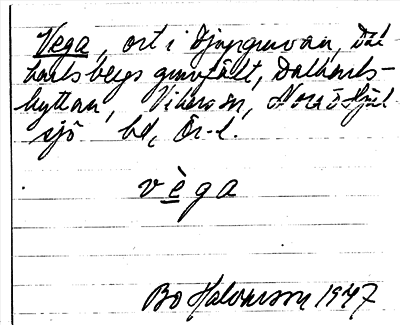 Vega, ort i Djupgruvan, Dal
karlsbergs gruvfält, Dalkarls-
hyttan, Vikers sn, Nora o Hjul
sjö bl, Ör-l.
vèga
Bo Halvarsson 1947